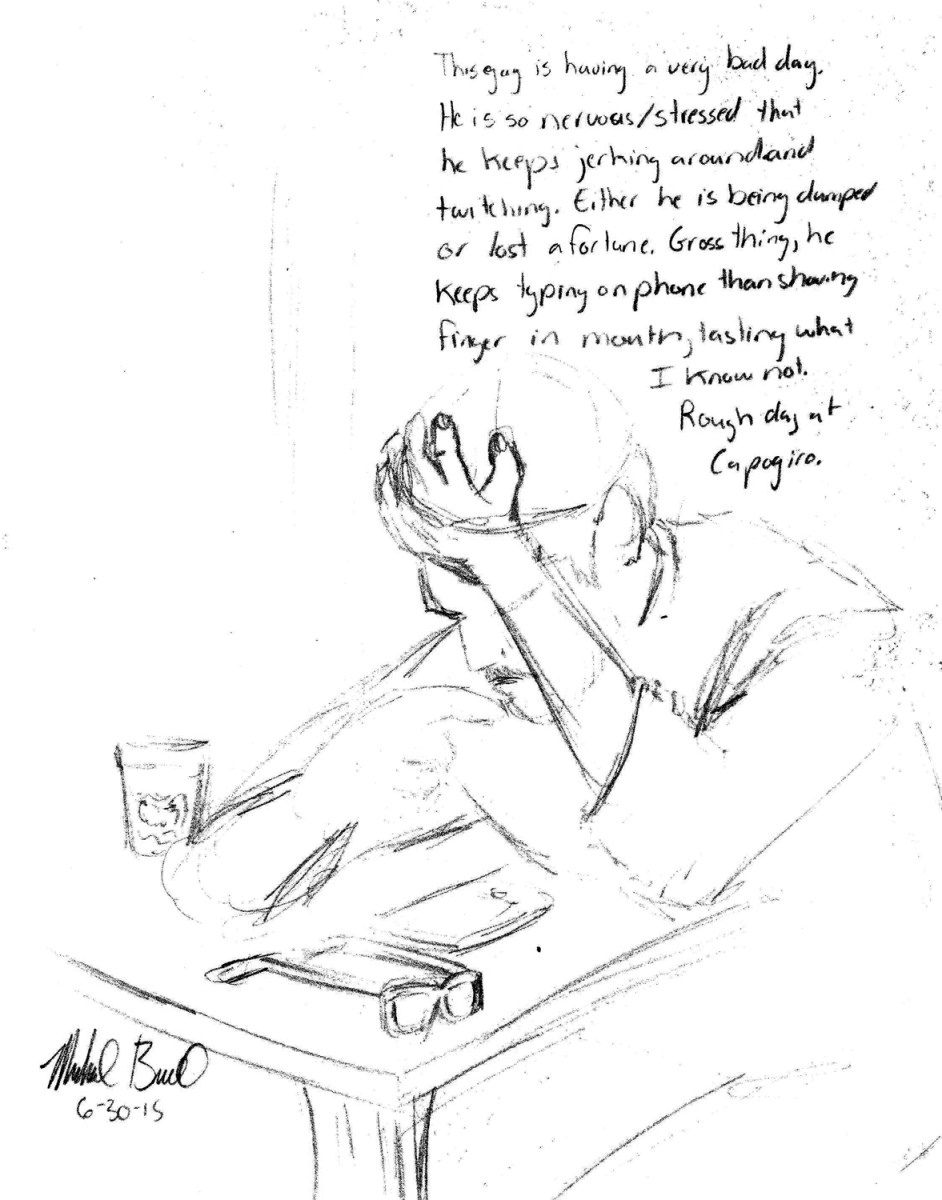 This guy is having a very bad day.
He is so nervous/stressed that
he keeps jerking around and
twitching. Either he is being dumped
or lost a fortune. Gross thing, he
keeps typing on phone than shoving
finger in mouth, tasting what
I know not.
Rough day at
Capogiro.
Michael
6-30-15